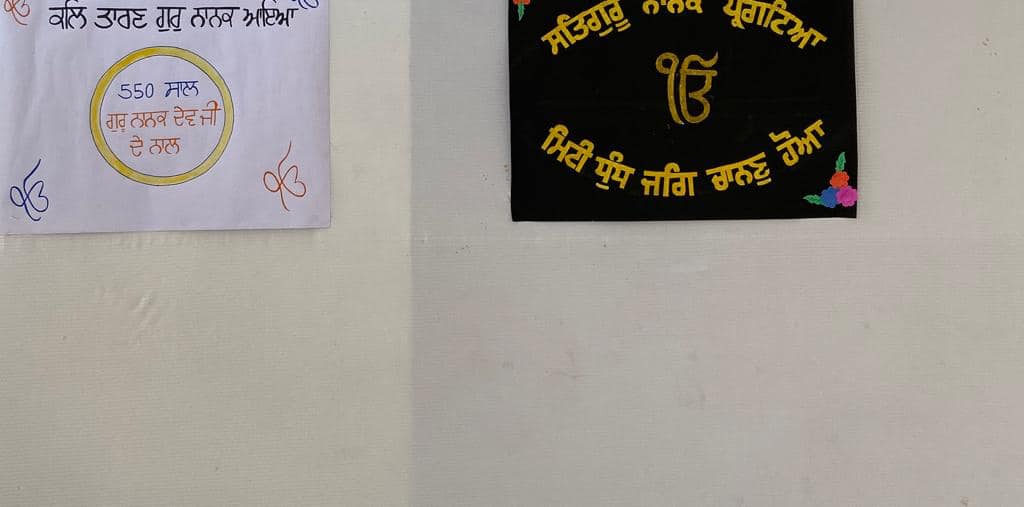 ੴ ੴ
ਕਲਿ ਤਾਰਣ ਗੁਰੁ ਨਾਨਕ ਆਇਆ
550 ਸਾਲ
ਗੁਰੂ ਨਾਨਕ ਦੇਵ ਜੀ
ਦੇ ਨਾਲ
ੴ ੴ
ਸਤਿਗੁਰੂ ਨਾਨਕ ਪ੍ਰਗਟਿਆ
ੴ
ਮਿਟੀ ਧੁੰਧ ਜਗਿ ਚਾਨਣੁ ਹੋਆ